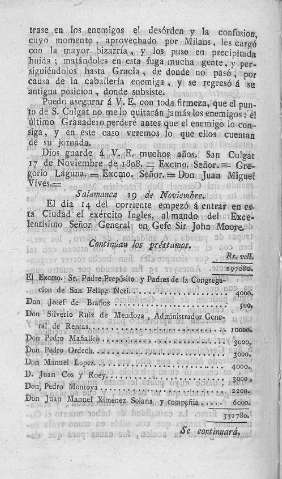 trase en los enemigos el desórden y la confusion,
cuyo momento, aprovechado por Milans, les cargó
con la mayor bizarria, y los puso en precipitada
huida; matándoles en esta fuga mucha gente, y per-
siguiéndolos hasta Gracia, de donde no pasó, por
causa de la caballería enemiga, y se regresó á su
antigua posicion, donde subsiste.
Puedo asegurar á V. E. con toda firmeza, que el pun-
to de S. Culgat no me lo quitarán jamás los enemigos: el
último Granadero perderé antes que el enemigo lo con-
siga, y en este caso veremos lo que ellos cuentan
de su jornada.
Dios guarde á V. E. muchos años. San Culgat
17 de Noviembre de 1808. = Excmo. Señor. = Gre-
gorio Laguna. = Excmo. Señor. = Don Juan Miguel
Vives. =
Salamanca 19 de Noviembre.
El dia 14 del corriente empezó á entrar en es-
ta Ciudad el exército Ingles, al mando del Exce-
lentísimo Señor General en Gefe Sir John Moore.
Continúan los préstamos.
Rs. vell.
El Excmo. Sr. Padre Prepósito y Padres de la Congrega-
cion de San Felipe Neri 4000.
Don Josef de Braños
Don Silverio Ruiz de Mendoza, Administrador Gene-
ral de Rentas 10000.
Don Pedro 3000.
Don Pedro 3000.
Don Manuel Lopez 4000.
D. Juan Cos y 3000.
Don Pedro Montoya 2200.
Don Juan Manuel Ximenez Solana y compañia 6000.
Se continuará.